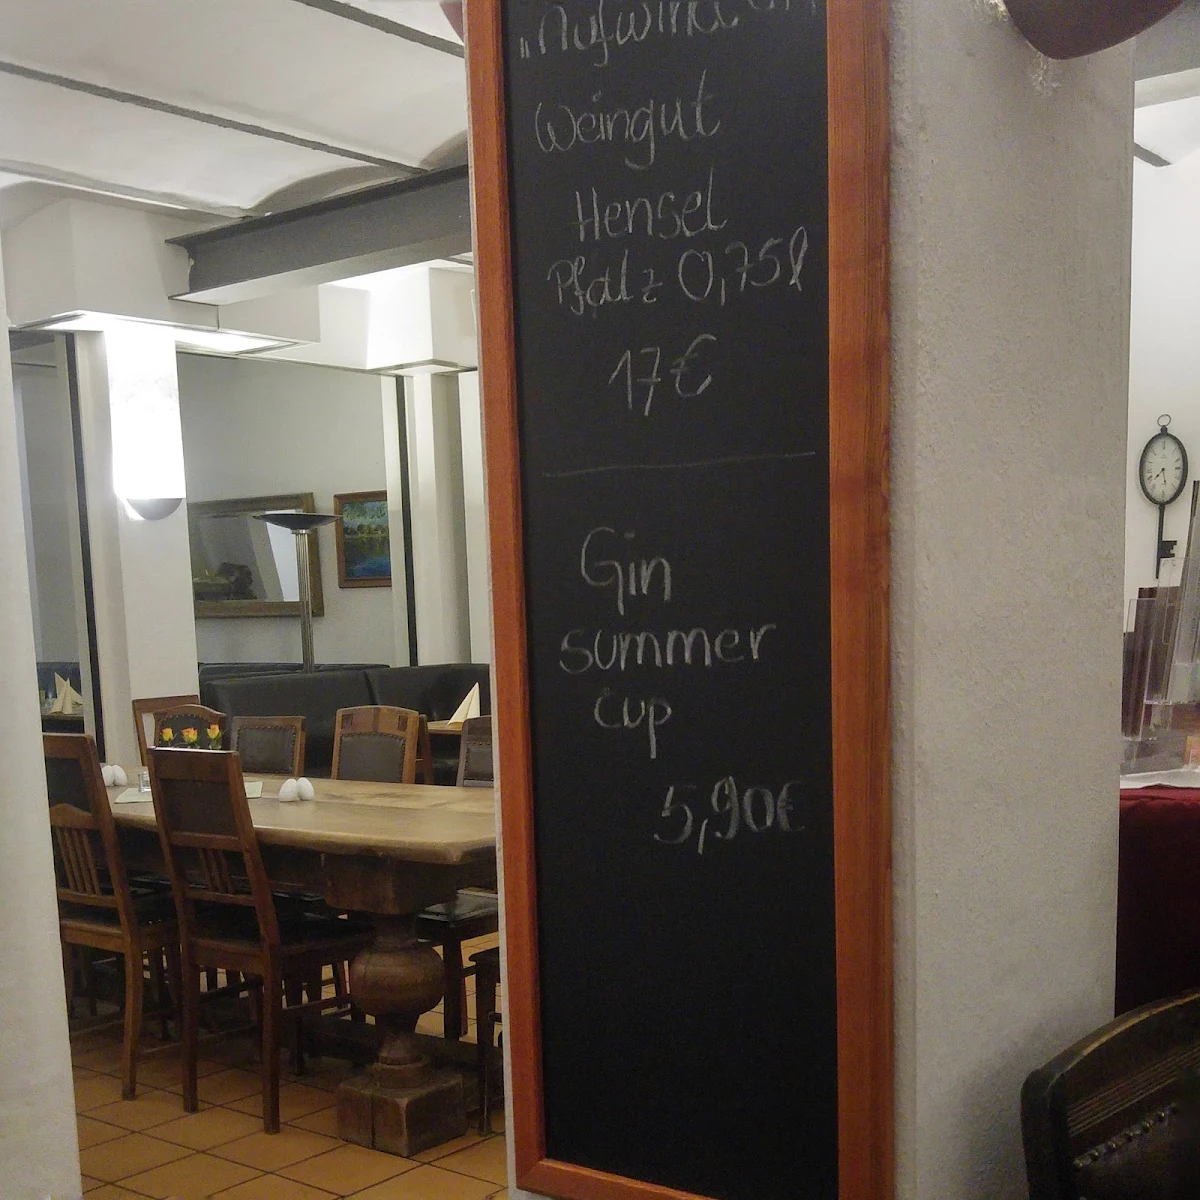 „Aufwind"
Weingut
Hensel
Pfalz 0,75l
17€
Gin
summer
cup
5,90€